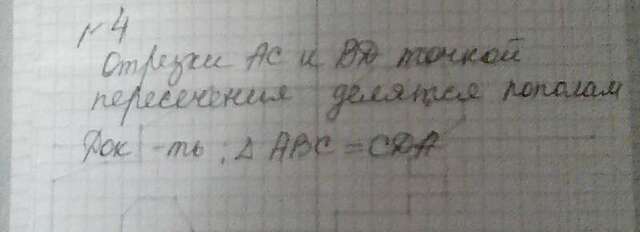 №4
Отрезки AC и BD точкой
пересечения делятся пополам
Док-ть: △ ABC = CDA